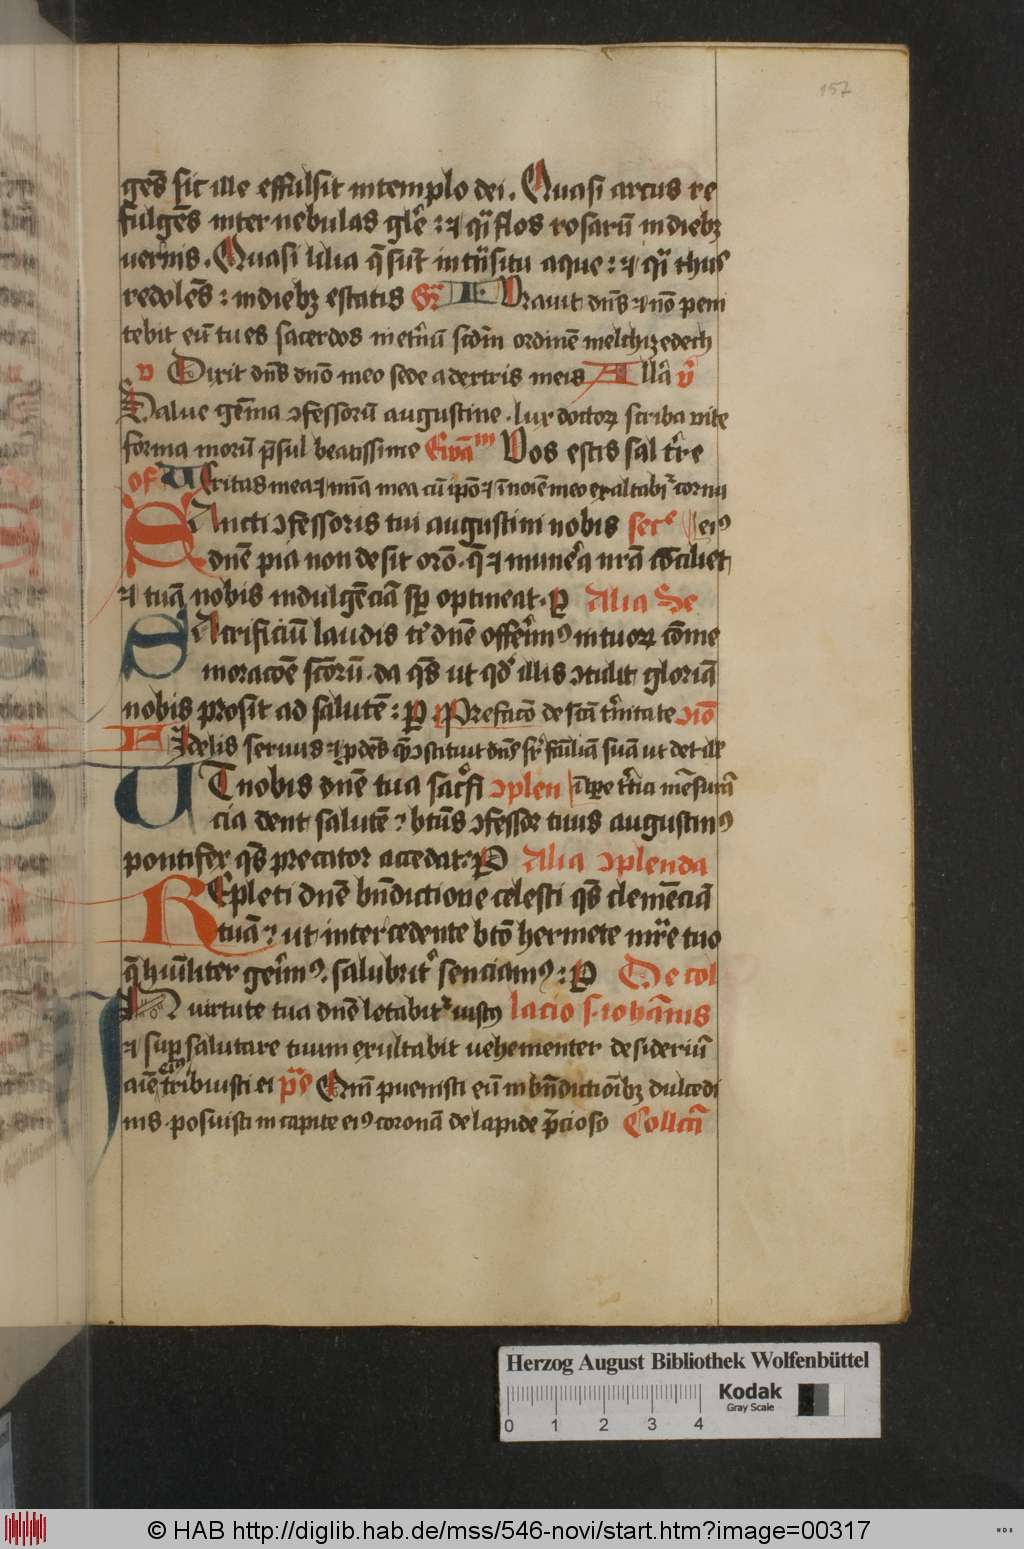 157
gēs sic ille effulsit in templo dei. Quasi arcus re
fulgēs inter nebulas glˀe : ⁊ qͥ flos rosarū in diebꝫ
vernis. Quasi lilia q̄ sūt in trāsitu aque : ⁊ qͥ thus
redolēs : in diebꝫ estatis Gr̄ Iurauit dn̄s ⁊ nō peni
tebit eū tu es sacerdos in etˀnū scd̄m ordinē melchizedech
v Dixit dn̄s dn̄o meo sede a dextris meis All'a v̄
Salue gēma ↄfessorū augustine. lux doctoꝝ scriba vite
forma morū p̄sul beatissime Ewāᵐ Vos estis sal tˀre
of Veritas mea ⁊ mīa mea cū ipō ⁊ ī noīe meo exaltabiᵗ cornu
Sancti ↄfessoris tui augustini nobis secᵉ eiꝰ
dn̄e pia non desit orō. q̄ ⁊ munera nr̄a ↄciliet
⁊ tuā nobis indulgēciā sp̄ optineat. P Alia Se
Sacrificiū laudis tˀ dn̄e offerimꝰ in tuoꝝ cōme
moracōe sctōrū. da qs̄ ut qd' illis ↄtulit gloriā
nobis prosit ad salutē : P Prefacō de sctā tˀnitate ↄiō
Fidelis seruus ⁊ pͬdēs quē ↄstituit dn̄s sꝑ familiā suā ut det illˀ
Ut nobis dn̄e tua sacˀfi ↄplen ī tp̄re tˀtici mēsurā
cia dent salutē ? btūs ↄfessor tuus augustinꝰ
pontifex qs̄ precator accedat : P Alia ↄplenda
Repleti dn̄e bn̄dictione celesti qs̄ clemēciā
tuā ? ut intercedente btō hermete mr̄e tuo
q̄ hūiliter gerimꝰ. salubritˀ senciamꝰ : P De col
In uirtute tua dn̄e letabitˀ iustꝰ lacio s. iohānis
⁊ suꝑ salutare tuum exultabit vehementer desideriū
aīe eiꝰ tribuisti ei p̄s Qm̄ p̄uenisti eū in bn̄dictiōibꝫ dulcedi
nis. posuisti in capite eiꝰ coronā de lapide p̄cioso Collcā
Herzog August Bibliothek Wolfenbüttel
Kodak
Gray Scale
0 1 2 3 4
© HAB http://diglib.hab.de/mss/546-novi/start.htm?image=00317